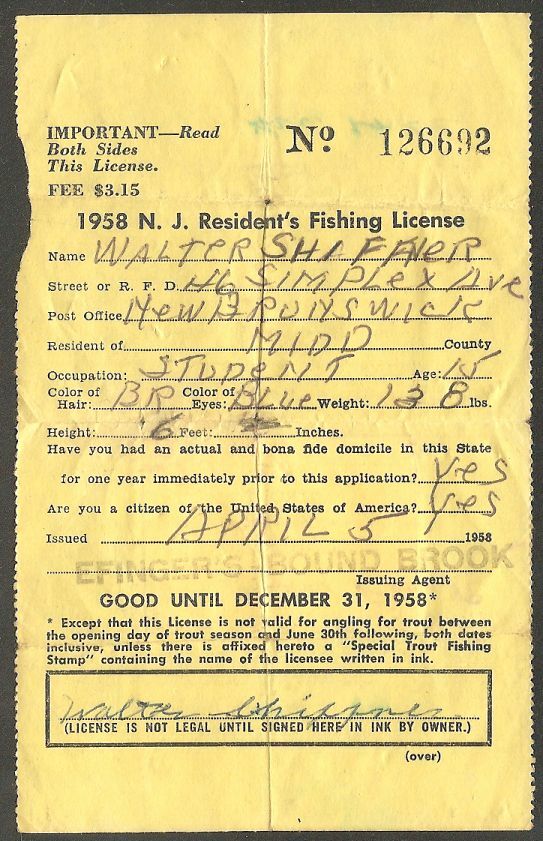 IMPORTANT—Read
Both Sides
This License.
FEE $3.15
No. 126692
1958 N. J. Resident's Fishing License
Name WALTER SHIFFNER
Street or R. F. D. 46 SIMPLEX AVE
Post Office NEW BRUNSWICK
Resident of MIDD County
Occupation: STUDENT Age: 15
Color of Hair: BR Color of Eyes: BLUE Weight: 138 lbs.
Height: 6 Feet: Inches.
Have you had an actual and bona fide domicile in this State
for one year immediately prior to this application? yes
Are you a citizen of the United States of America? yes
Issued APRIL 5 1958
EFINGER'S-BOUND BROOK
Issuing Agent
GOOD UNTIL DECEMBER 31, 1958*
* Except that this License is not valid for angling for trout between
the opening day of trout season and June 30th following, both dates
inclusive, unless there is affixed hereto a "Special Trout Fishing
Stamp" containing the name of the licensee written in ink.
Walter Shiffner
(LICENSE IS NOT LEGAL UNTIL SIGNED HERE IN INK BY OWNER.)
(over)